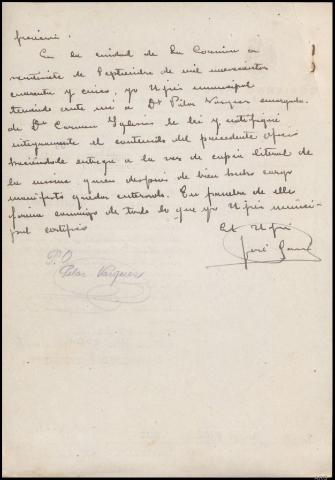 En la ciudad de La Coruña a
veintisiete de Septiembre de mil novecientos
cuarenta y cinco, yo Ujier municipal
teniendo ante mi a Dª Pilar Vázquez encargada
de Dª Carmen Iglesias le lei y notifiqué
integramente el contenido del precedente oficio
haciéndole entrega a la vez de copia literal de
la misma quien después de bien hecha cargo
manifestó quedar enterada. En prueba de ello
firma conmigo de todo lo que yo Ujier munici-
pal certifico
El Ujier
José
P.O
Pilar Vazquez